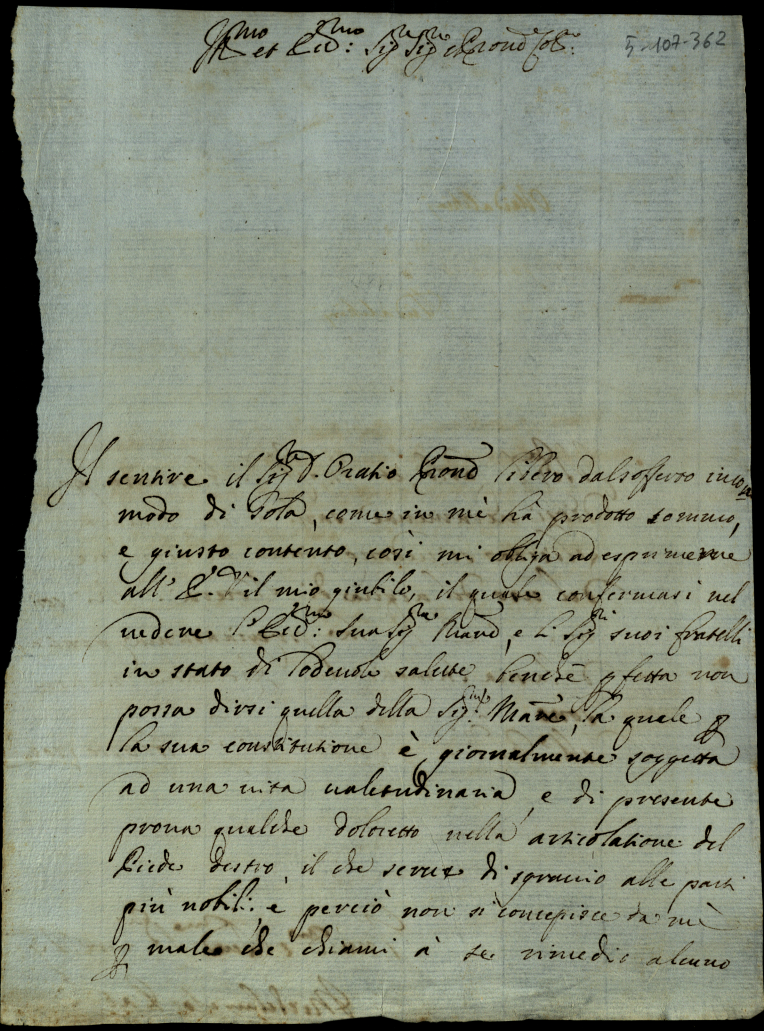 Ill.mo et Ecc.mo Sig.r Sig.r e Pron.e Col.mo
5-107-362
Il sentire il Sig.r D. Oratio Pron.e libero dal sofferto inco
modo di Gola, come in mè hà prodotto sommo,
e giusto contento, così mi obliga ad esprimerne
all' E.V. il mio giubilo, il quale confermasi nel
vedere l'Ecc.ma Sua Sig.ra Madre, e li Sig.ri suoi fratelli
in stato di lodevole salute, benchè p fetta non
possa dirsi quella della Sig.ra Madre, la quale p
la sua constitutione è giornalmente soggetta
ad una vita valetudinaria, e di presente
prova qualche doloretto nella articolatione del
Piede destro, il che serve di sgravio alle parti
più nobili; e perciò non si concepisce da mè
p male che chiami à se rimedio alcuno